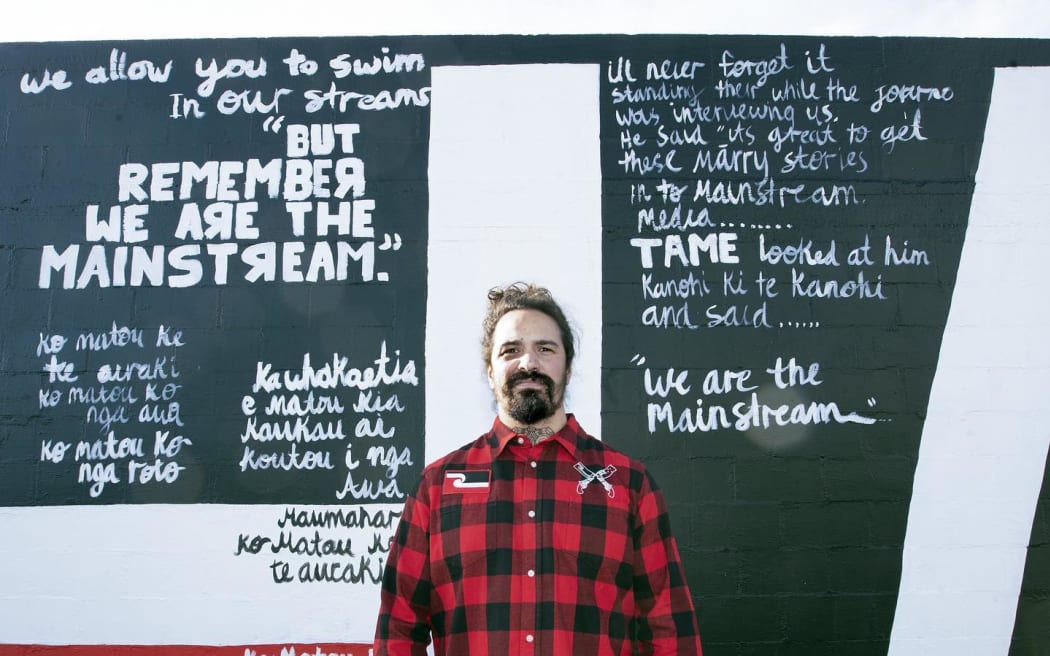 we allow you to swim
In our streams
"BUT
REMEMBER
WE ARE THE
MAINSTREAM."
Ko matou ke
te auraki
Ko matou ko
nga awa
Ko matou Ko
nga roto
Ka whakaetia
e Matou Kia
Kaukau ai
Koutou i nga
Awa
Maumahar
Ko Matou K
te auraki
Ko Matou
ill never forget it
standing their while the journo
was interviewing us.
He Said "its great to get
these Māary stories
in to Mainstream
Media........
TAME looked at him
Kanohi Ki te Kanohi
and said......
"We are the
Mainstream"